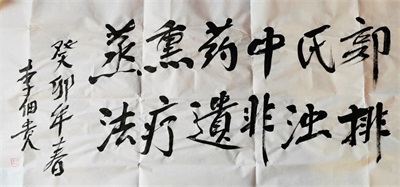 郭氏中药熏蒸
排浊非遗疗法
癸卯年春
李佃贵